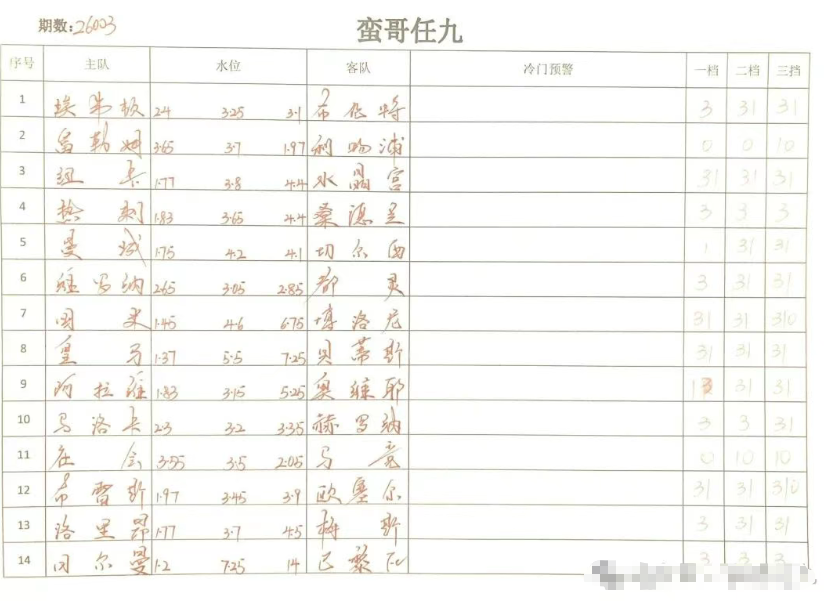 期数:26003
蛮哥任九
序号 主队 水位 客队 冷门预警 一档 二档 三挡
1 埃弗顿 2.4 3.25 3.1 布伦特 3 31 31
2 富勒姆 3.65 3.7 1.97 利物浦 0 0 10
3 纽卡 1.77 3.8 4.4 水晶宫 31 31 31
4 热刺 1.83 3.65 4.4 桑德兰 3 3 3
5 曼城 1.75 4.2 4.1 切尔西 1 31 31
6 维罗纳 2.65 3.05 2.85 都灵 3 31 31
7 国米 1.45 4.6 6.75 博洛尼 31 31 310
8 皇马 1.37 5.5 7.25 贝蒂斯 31 31 31
9 阿拉维 1.83 3.15 5.25 奥维耶 13 31 31
10 马洛卡 2.3 3.2 3.35 赫罗纳 3 3 31
11 在会 3.55 3.5 2.05 马竞 0 10 10
12 布雷斯 1.97 3.45 3.9 欧塞尔 31 31 310
13 洛里昂 1.77 3.7 4.5 梅斯 3 31 31
14 日尔曼 1.2 7.25 14 巴黎FC 3 3 3